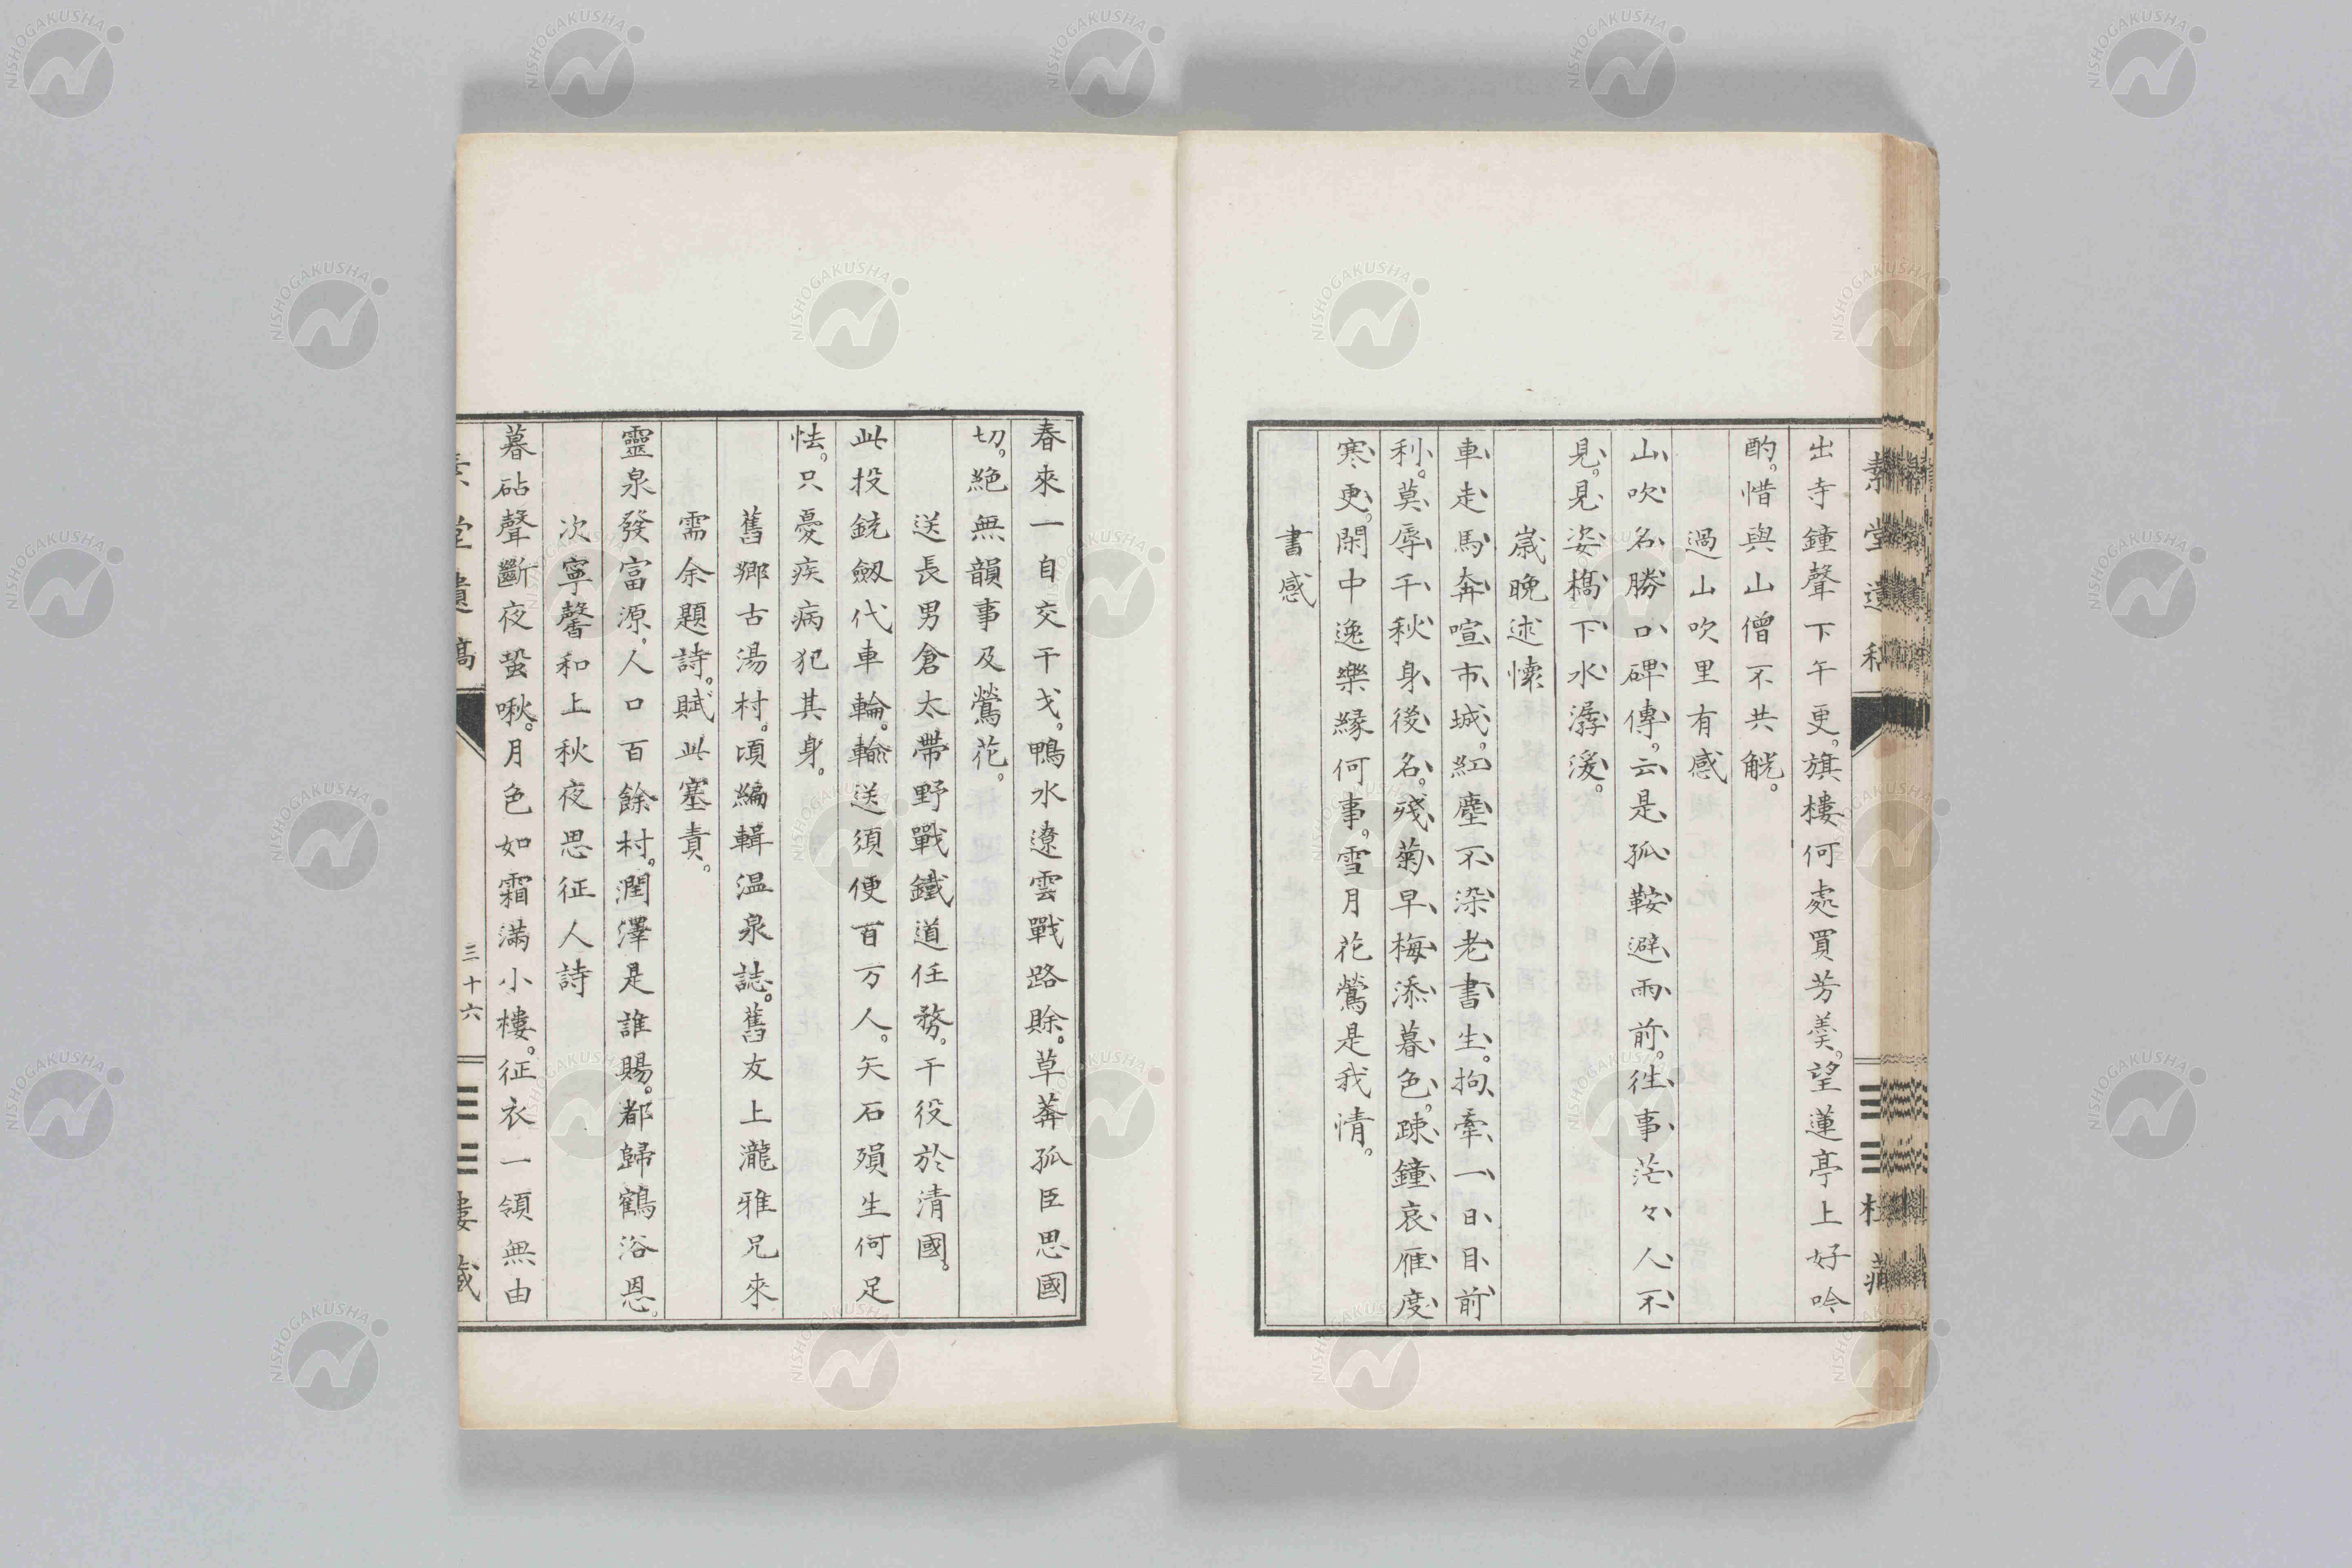 出寺鐘聲下午更。旗樓何處買芳羮。望蓮亭上好吟
酌。惜與山僧不共觥。
過山吹里有感
山吹名勝口碑傳。云是孤鞍避雨前。往事茫々人不
見。見姿橋下水潺湲。
嵗晩述懐
車走馬奔喧市城。紅塵不染老書生。拘牽一日目前
利。莫辱千秋身後名。殘菊早梅添暮色。疎鐘哀雁度
寒更。閑中逸樂緣何事。雪月花鶯是我情。
書感
春來一自交干戈。鴨水遼雲戰路賖。草莽孤臣思國
切。絶無韻事及鶯花。
送長男倉太帶野戰鐵道任務。干役於清國。
此投銃劔代車輪。輸送須便百万人。矢石殞生何足
怯。只憂疾病犯其身。
舊鄉古湯村。頃編輯温泉誌。舊友上瀧雅兄來
需余題詩。賦此塞責。
靈泉發富源。人口百餘村。潤澤是誰賜。都歸鶴浴恩。
次寧馨和上秋夜思征人詩
暮砧聲斷夜蛩啾。月色如霜滿小樓。征衣一領無由
素堂遺稿
三十六
樓藏
NISHOGAKUSHA